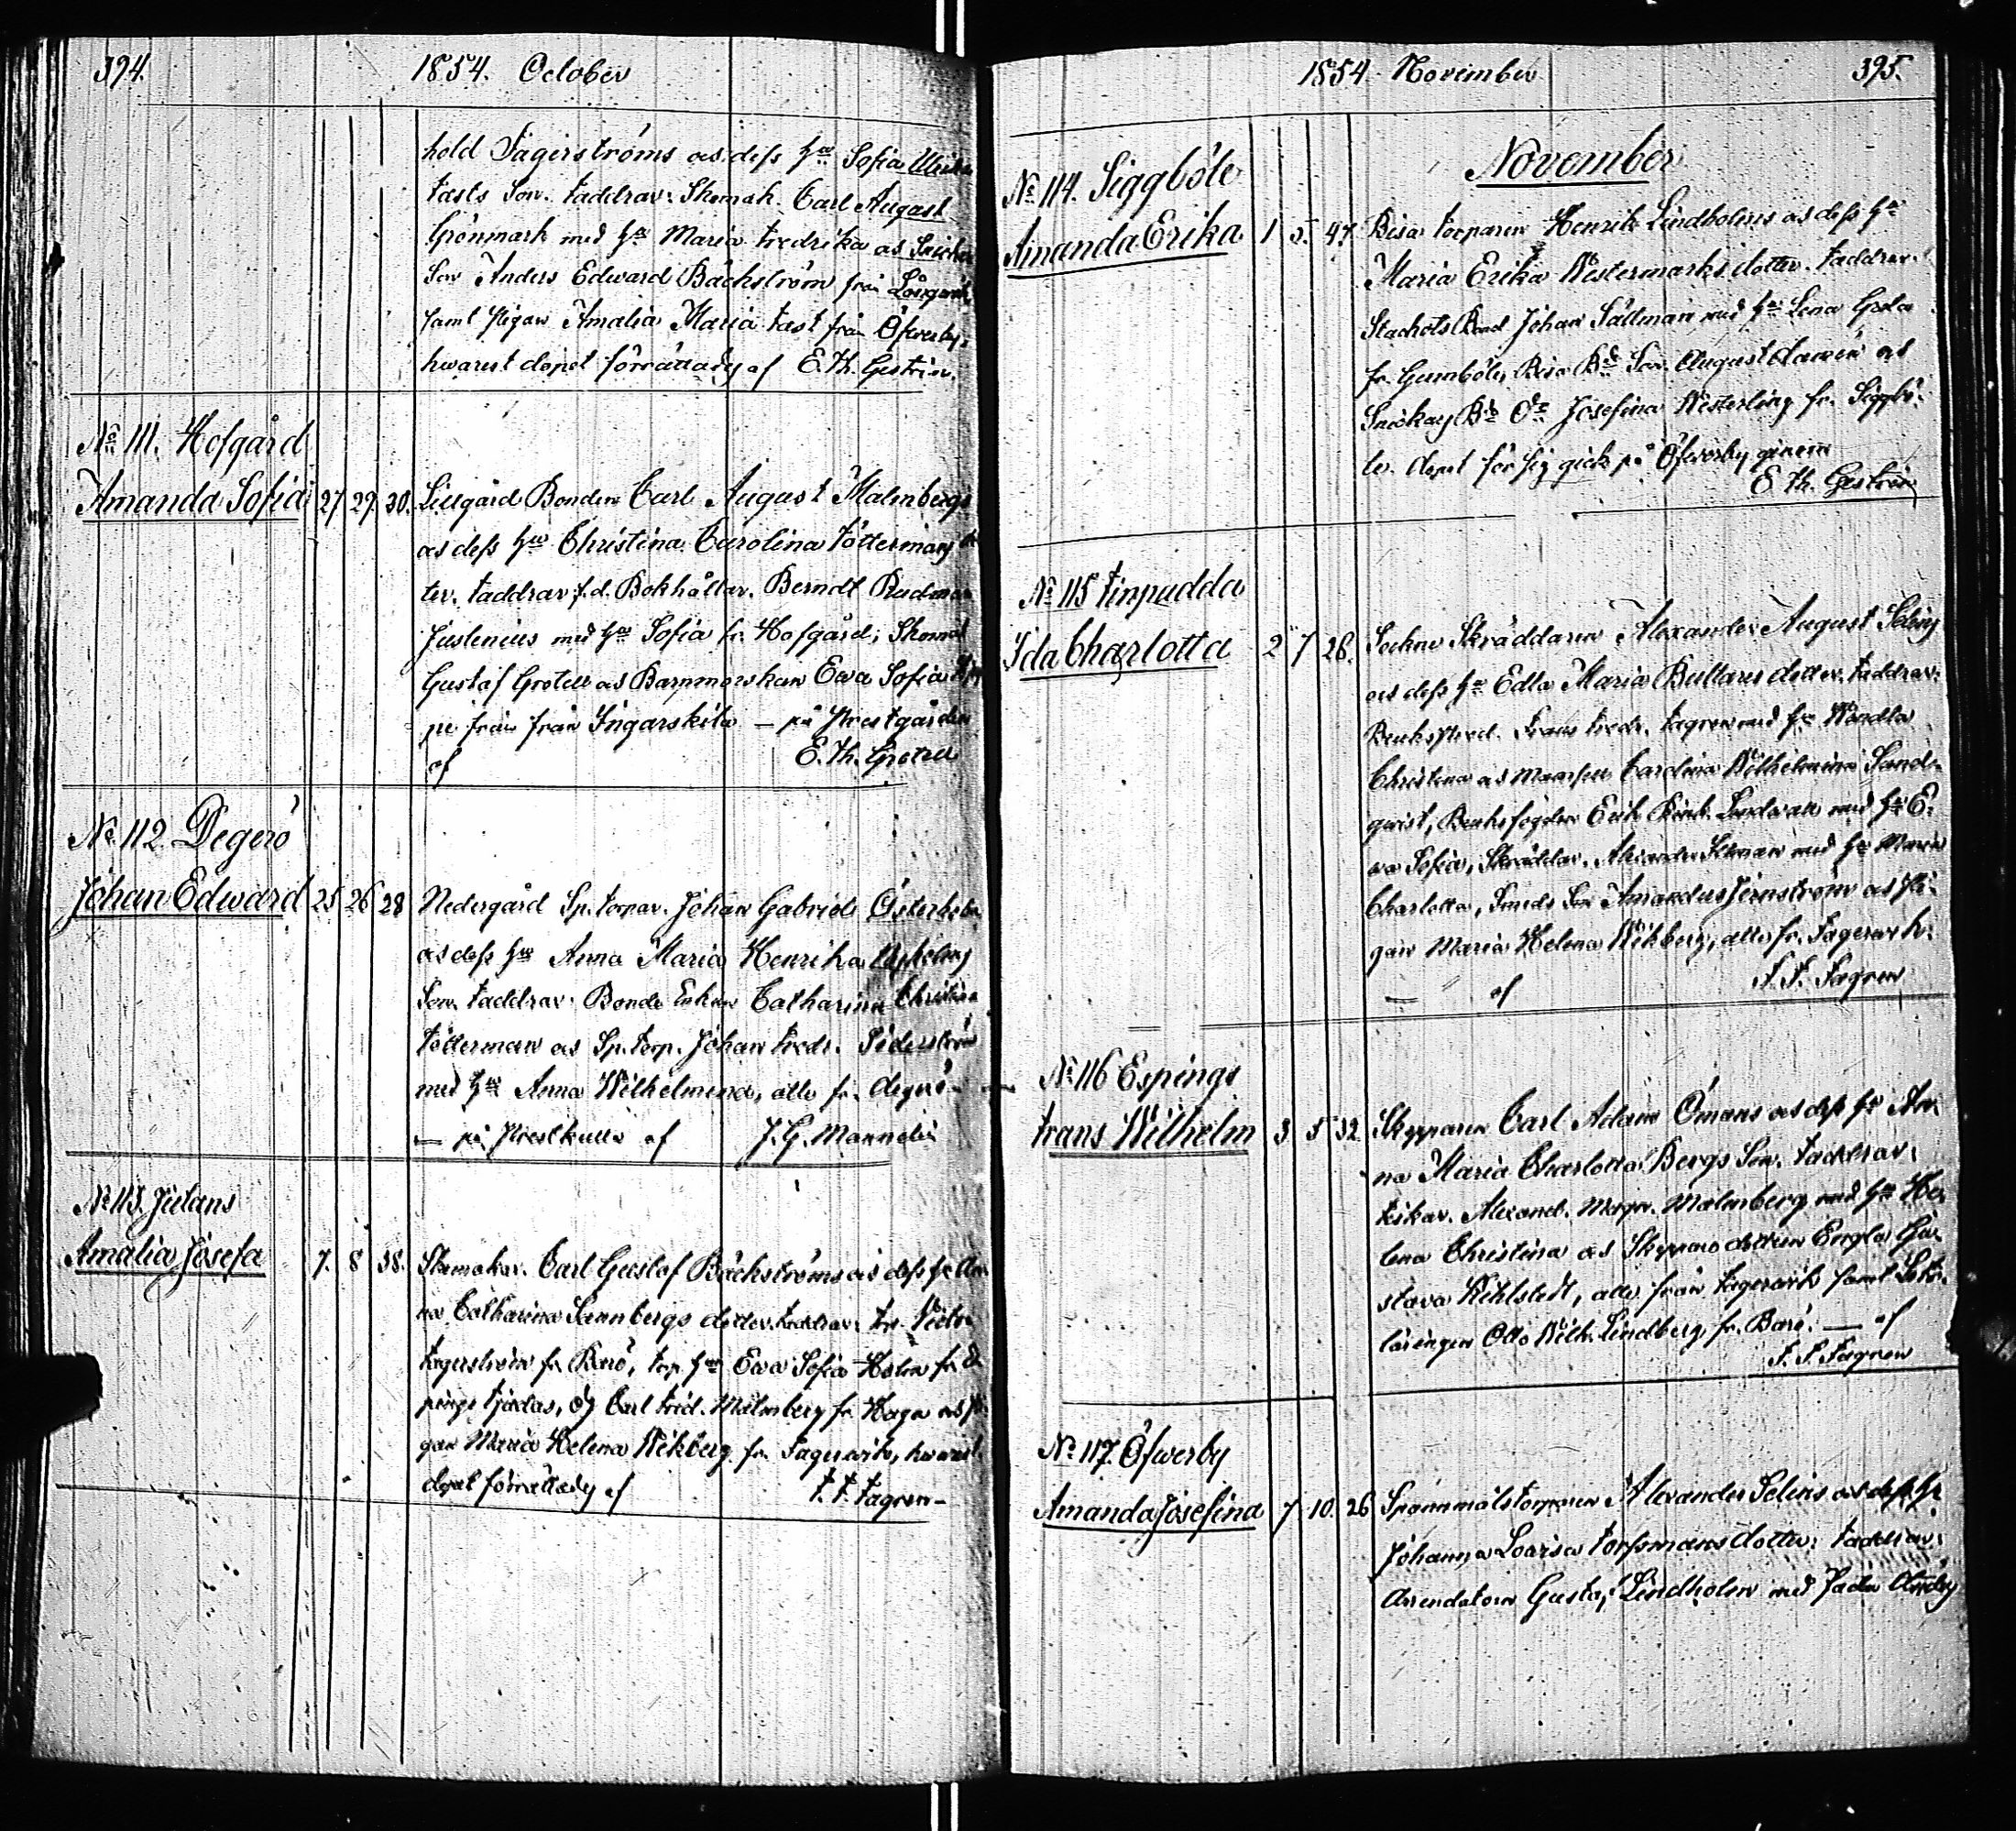 394.
1854. October
hold Fagerströms och dess Hu Sofia Ulrika
Fasts Son. Faddrar: Skomak. Carl August
Grönmark med Hu Maria Fredrika och
Son Anders Edward Bäckström från Långwik,
samt Pigan Amalia Maria Fast från Öfwerby,
hwarest dopet förrättades af E. Th. Geström.
No 111. Hofgård
Amanda Sofia 27. 29. 30. Lillgård Bonden Carl August Malmbergs
och dess Hu Christina Carolina Töttermans dot
ter. Faddrar f.d. Bokhållar. Berndt
Juslenius med Hu Sofia fr. Hofgård; Skomak
Gustaf Grotell och Barnmorskan Ewa Sofia
pe från från Ingarskila — på Prestgården
af E. Th. Grotell
No 112. Degerö
Johan Edward 25 26 28 Nedergård Sp. torpar. Johan Gabriels Österholm
och dess Hu Anna Maria Henrika
Son. Faddrar: Bonde Enkan Catharina Christina
Tötterman och Sp. torp. Johan Fredr. Söderström
med Hu Anna Wilhelmina, alla fr. Degerö –
— på Prestkulla af J. G. Mannelin
No 113. Julans
Amalia Josefa 7. 8 38. Skomakar. Carl Gustaf Bäckströms och dess Hu An
na Catharina Sannbergs dotter. Faddrar:
Fagerström fr. Barö, torp. Hu Ewa Sofia Holm fr. Es
pings Carl Fred. Malmberg fr. Haga och Pi
gan Maria Helena Wikberg fr. Fagerwik, hwarest
dopet förrättades af F. F. Fagren –
1854 November
395.
November
No 114. Siggböle
Amanda Erika 1 5. 47. Bisa Torparen Henrik Lindholms och dess Hu
Maria Erika Westermarks dotter. Faddrar:
Bond Johan Sällman med Hu Lena Greta
fr. Gumböle, Bisa Bd Son August och
Snickars Bd Dr Josefina Westerling fr. Siggbö-
le. dopet för sig gick på Öfwerby genom
E. Th. Geström
No 115 Finpudda
Ida Charlotta 2 7 28. Sockne Skräddaren Alexander August Selins
och dess Hu Edla Maria Bullars dotter. Faddrar:
Bruks Pred. Frans Fredr. Fagren med Hu Wendla
Christina och Mamsell Carolina Wilhelmina Sand-
qwist, Bruksfogden Erik med Hu E-
wa Sofia, Skräddar. Alexander med Hu Maria
Charlotta, Smeds Son Amandus Jernström och Pi-
gan Maria Helena Wikberg, alla fr. Fagerwik.
— af F. F. Fagren
No 116 Espings
Frans Wilhelm 3 5 32. Skepparen Carl Adam Ömans och dess Hu An-
na Maria Charlotta Bergs Son. Faddrar:
Fiskar. Alexand. Magn. Malmberg med Hu He-
lena Christina och Skeppare dottern Engla Gu-
stava Wihlstedt, alla från Fagerwik samt
Otto Wilh. Lindberg fr. Barö. — af
F. F. Fagren
No 117. Öfwerby
Amanda Josefina 7 10. 26 Spannmålstorparen Alexander Selins och dess Hu
Johanna Lovisa Forssmans dotter. Faddrar:
Arrendatorn Gustaf Lindholm med